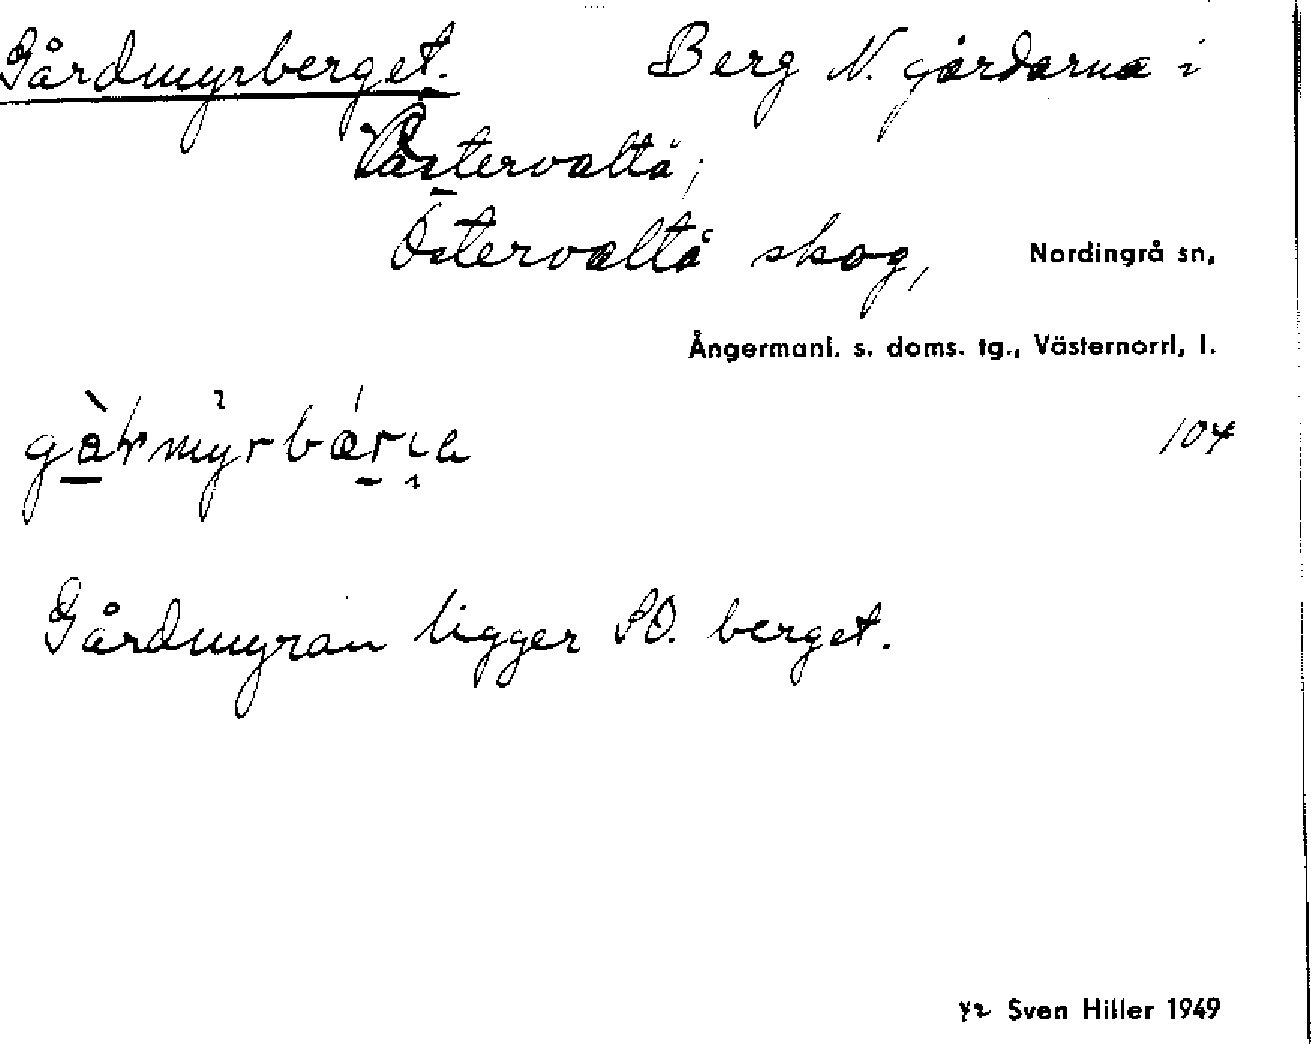 Gårdmyrberget. Berg N. gårdarna i
Västervaltå;
Östervaltå skog, Nordingrå sn,
Ångermanl. s. doms. tg., Västernorrl, l.
104
Gårdmyran ligger SO. berget.
Sven Hiller 1949